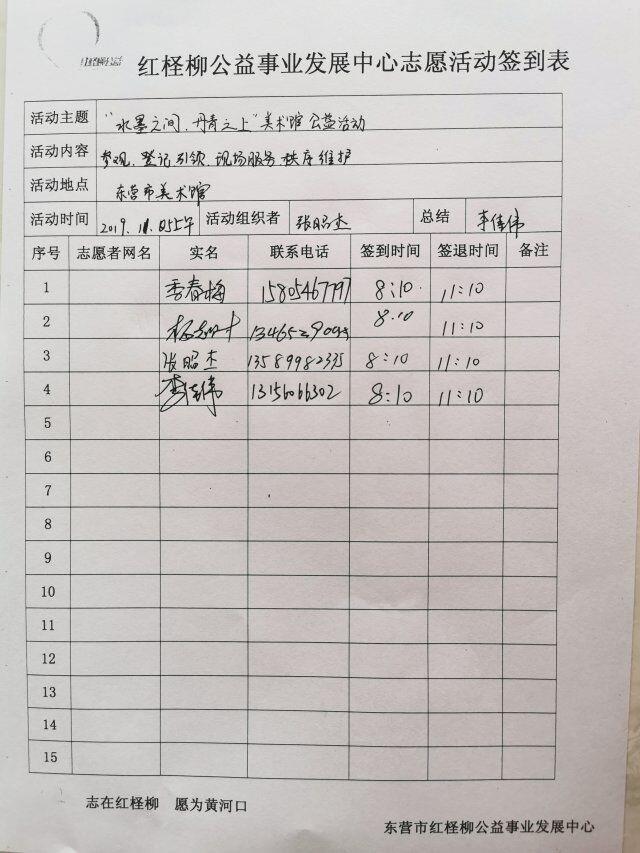 红柽柳公益事业发展中心志愿活动签到表
活动主题 “水墨之间、丹青之上”美术馆公益活动
活动内容 参观、登记引领、现场服务秩序维护
活动地点 东营市美术馆
活动时间 2019.11.05上午 活动组织者 张昭杰 总结 李佳伟
序号 志愿者网名 实名 联系电话 签到时间 签退时间 备注
1 季春梅 15805467797 8:10 11:10
2 8:10 11:10
3 张昭杰 13589982335 8:10 11:10
4 李佳伟 13156066302 8:10 11:10
5
6
7
8
9
10
11
12
13
14
15
志在红柽柳 愿为黄河口
东营市红柽柳公益事业发展中心